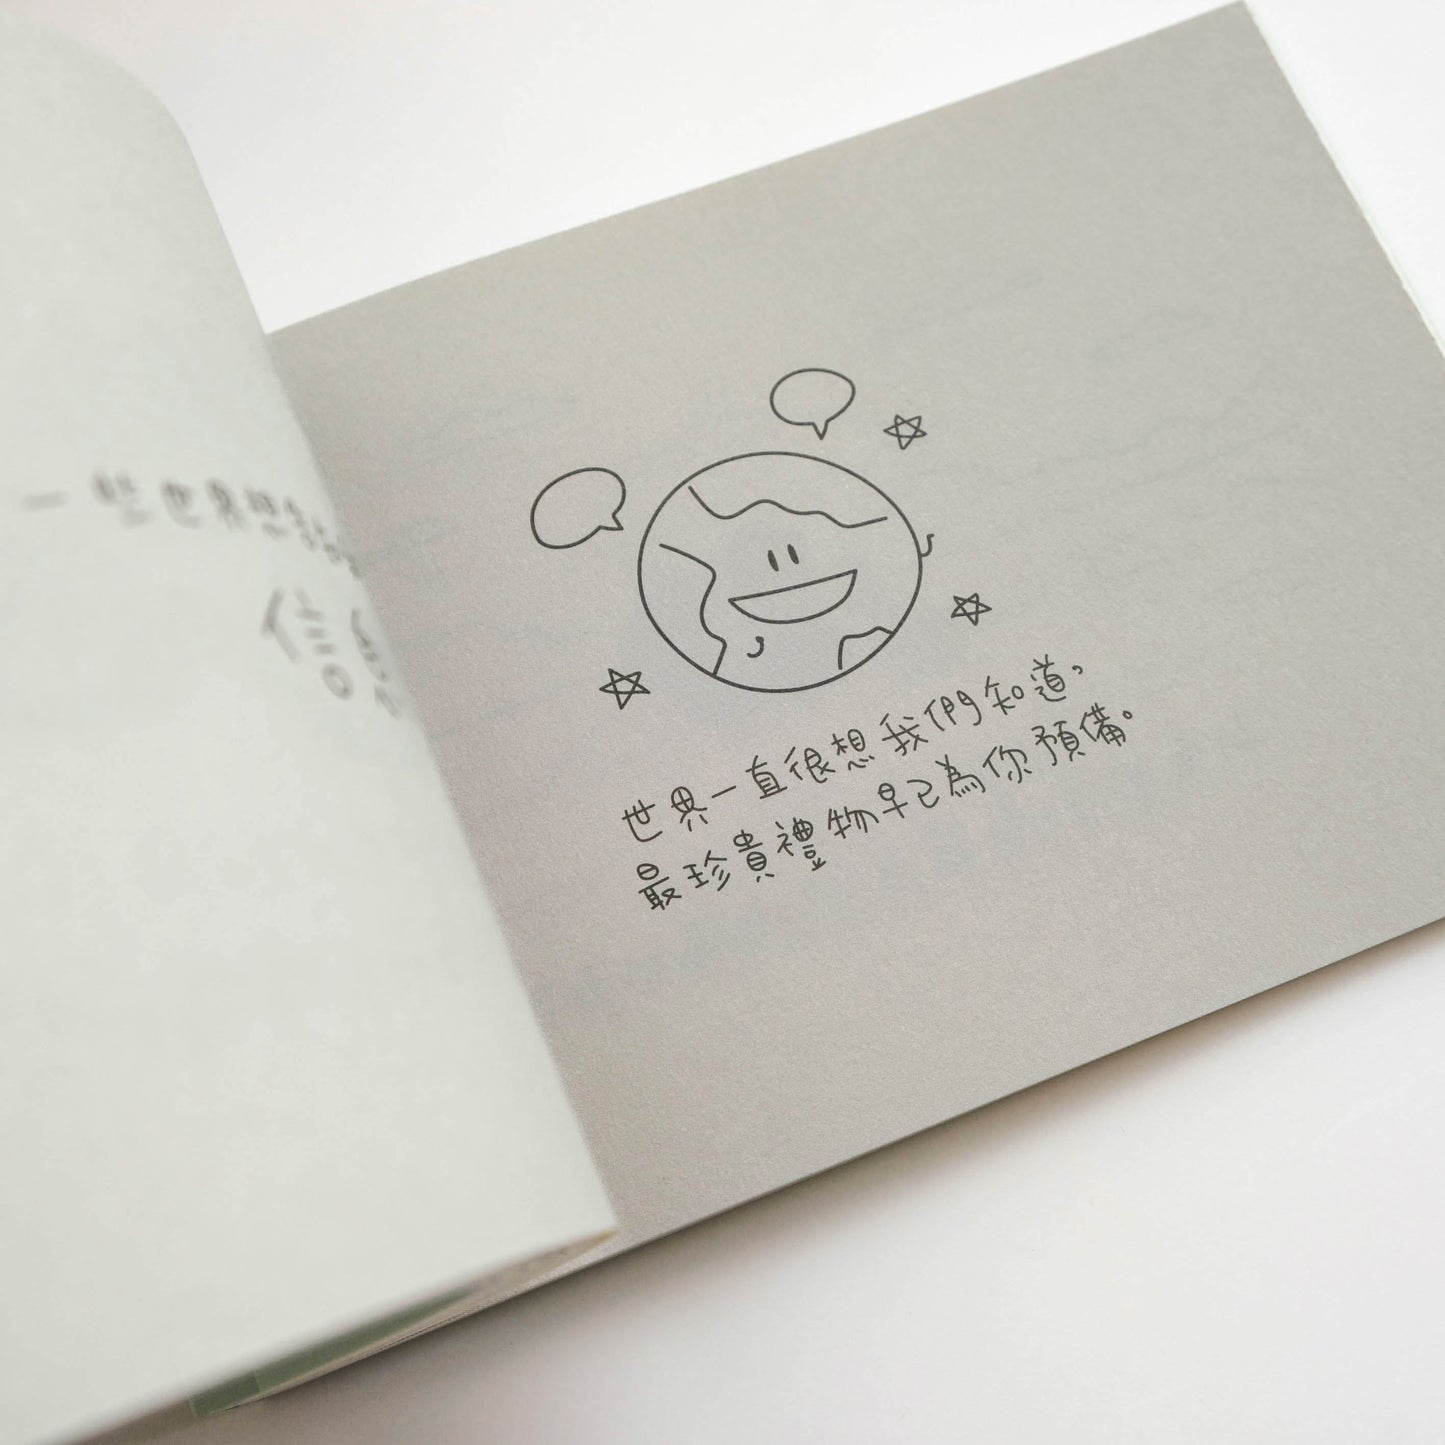 一些世界想
信
世界一直很想我們知道，
最珍貴禮物早已為你預備。